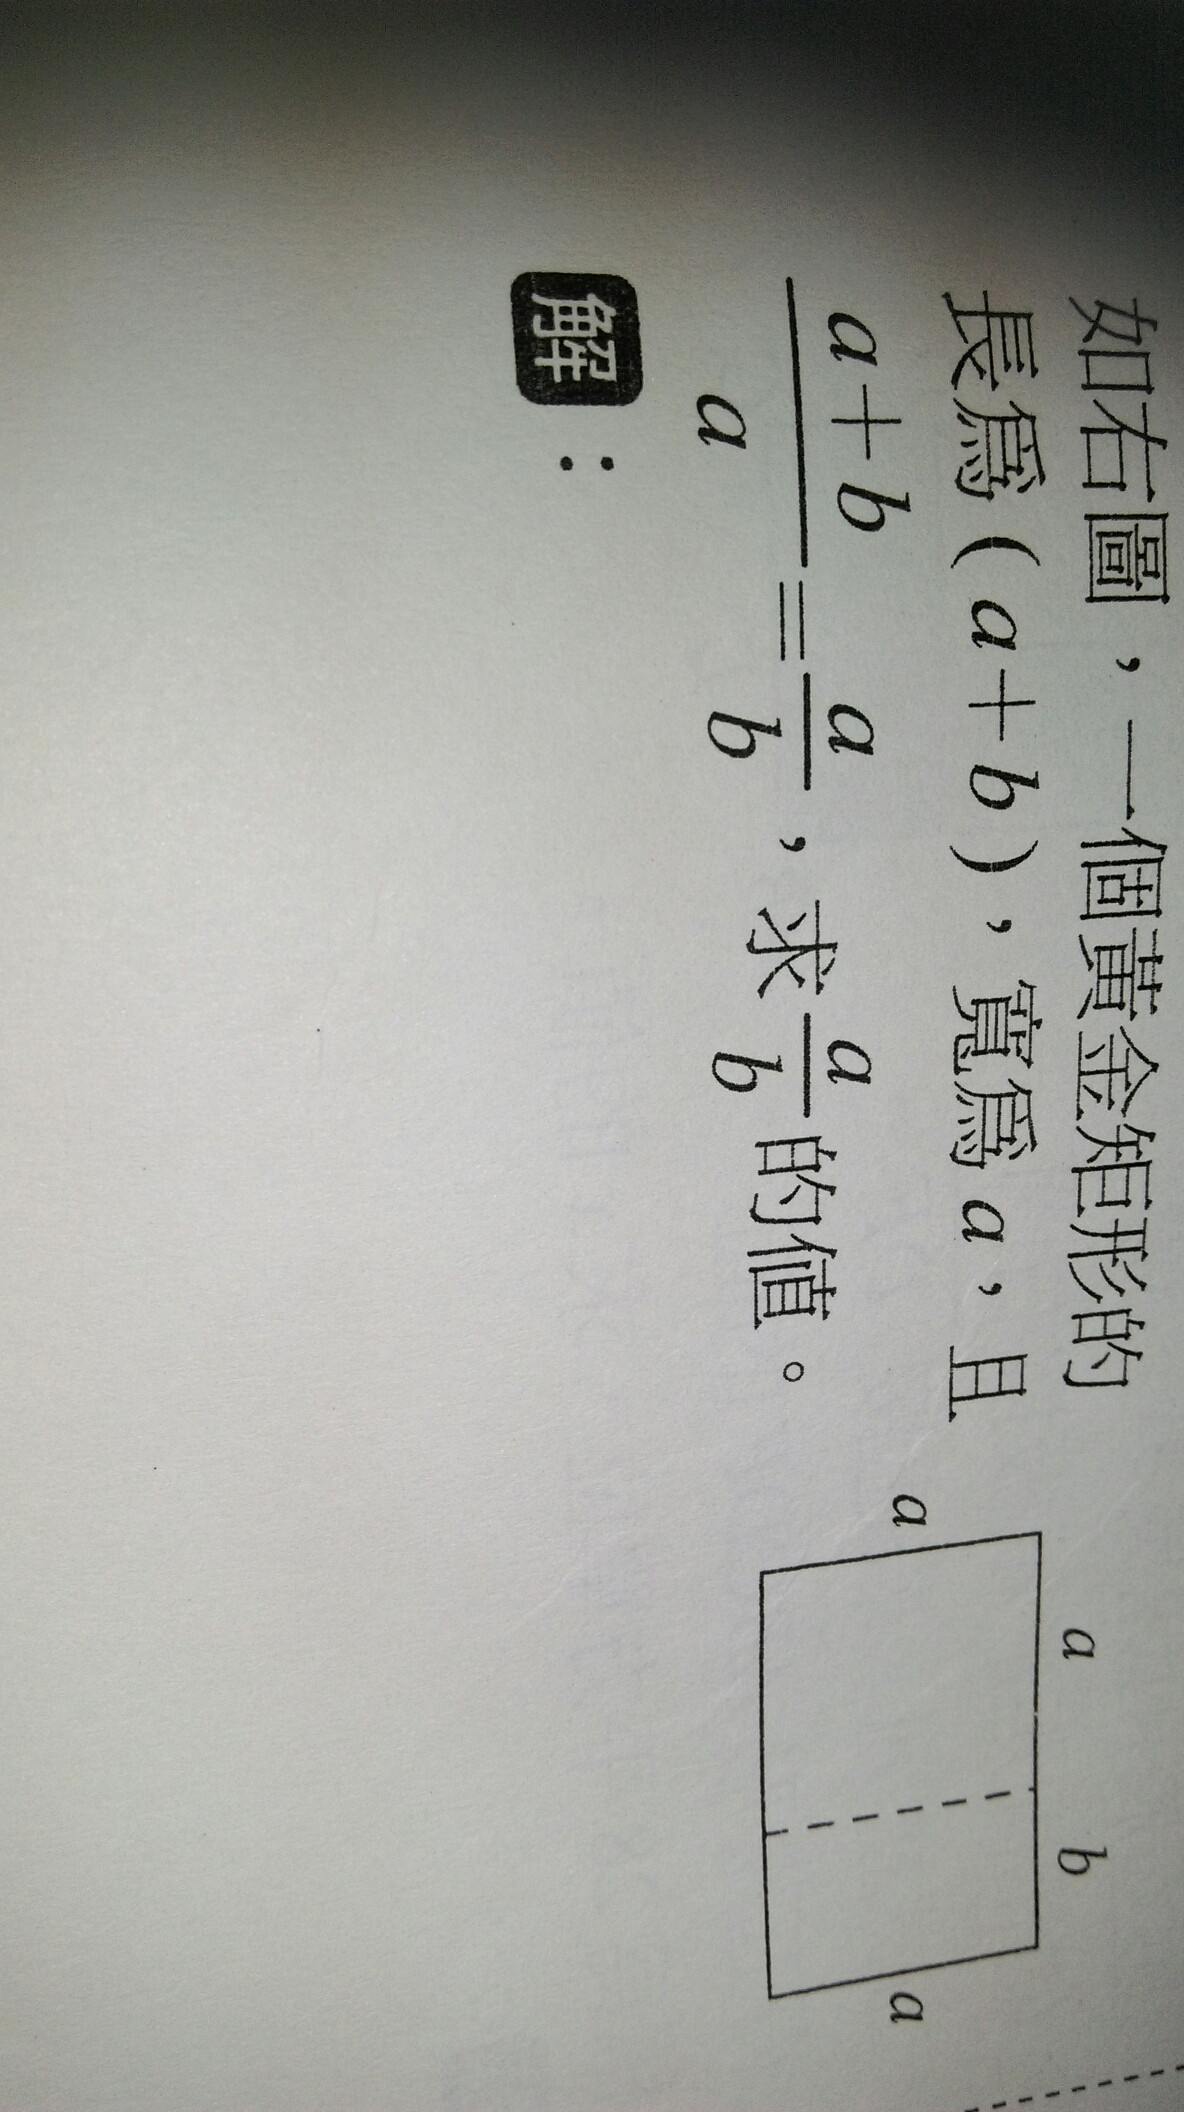 如右圖，一個黃金矩形的
長爲(a+b)，寬爲a，且
a+b/a=a/b，求a/b的值。
解：
a
b
a
a